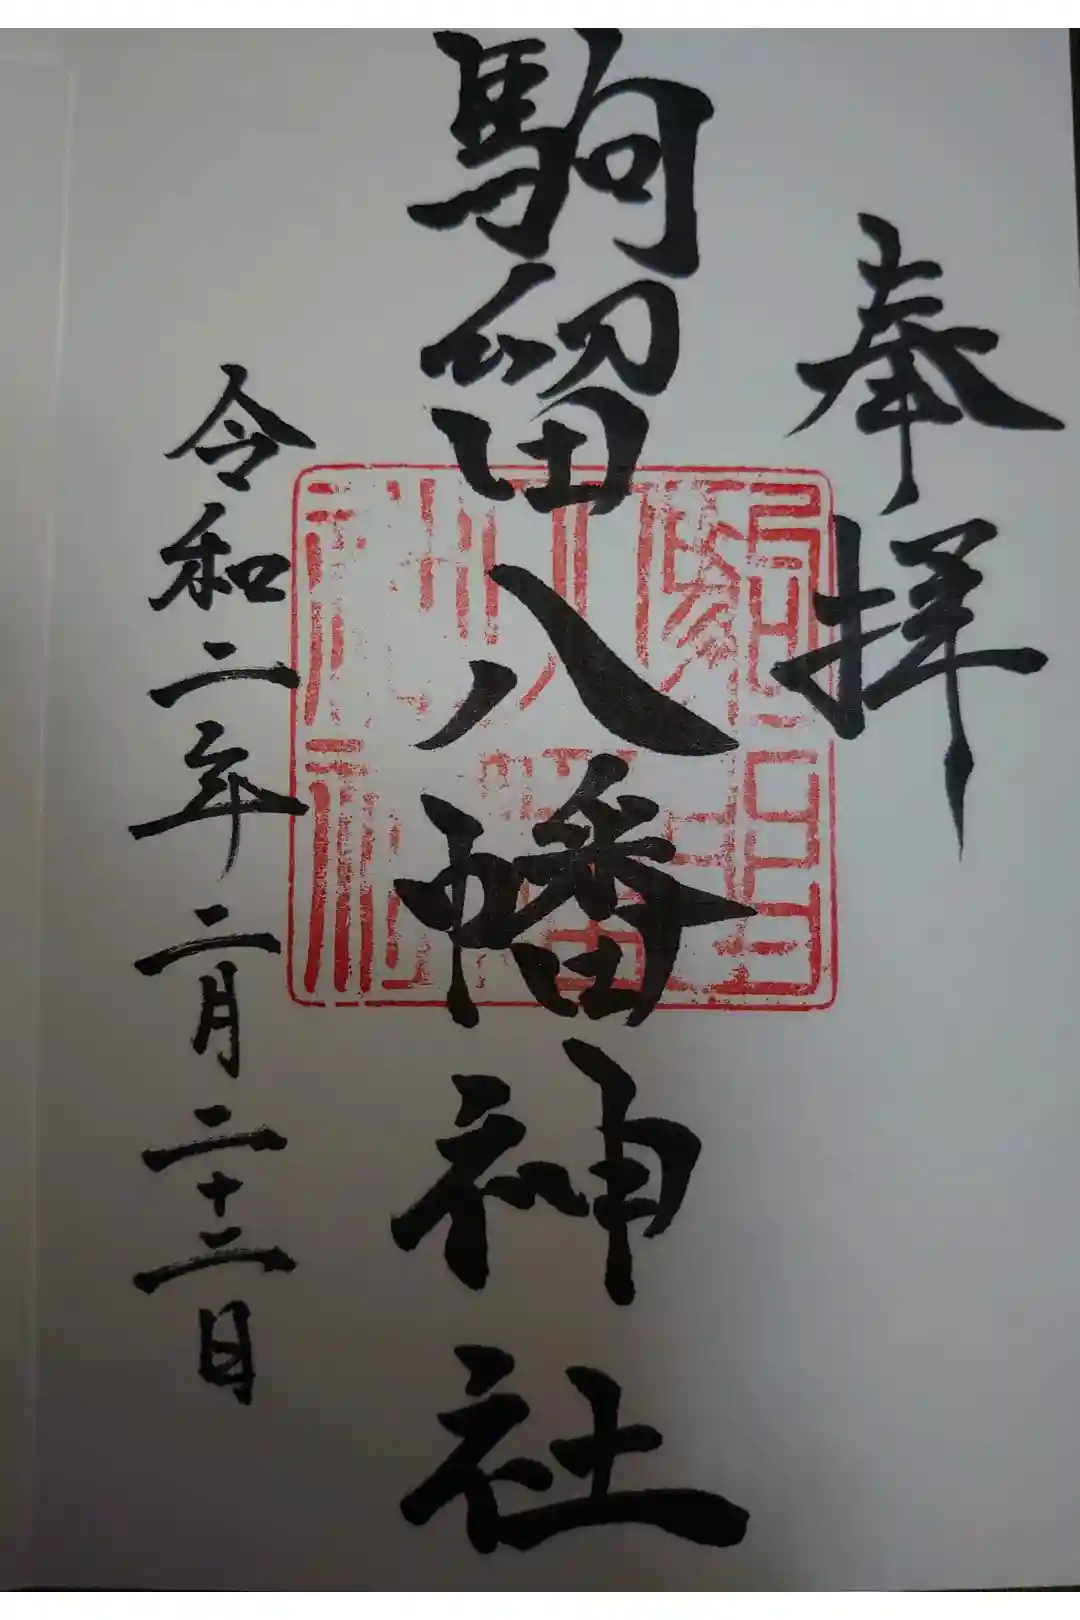 奉拝
駒留八幡神社
令和二年二月二十二日